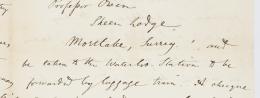 Professor Owen
Sheen Lodge,
Mortlake, Surrey", and
be taken to the Waterloo Station to be
forwarded by luggage train". A cheque